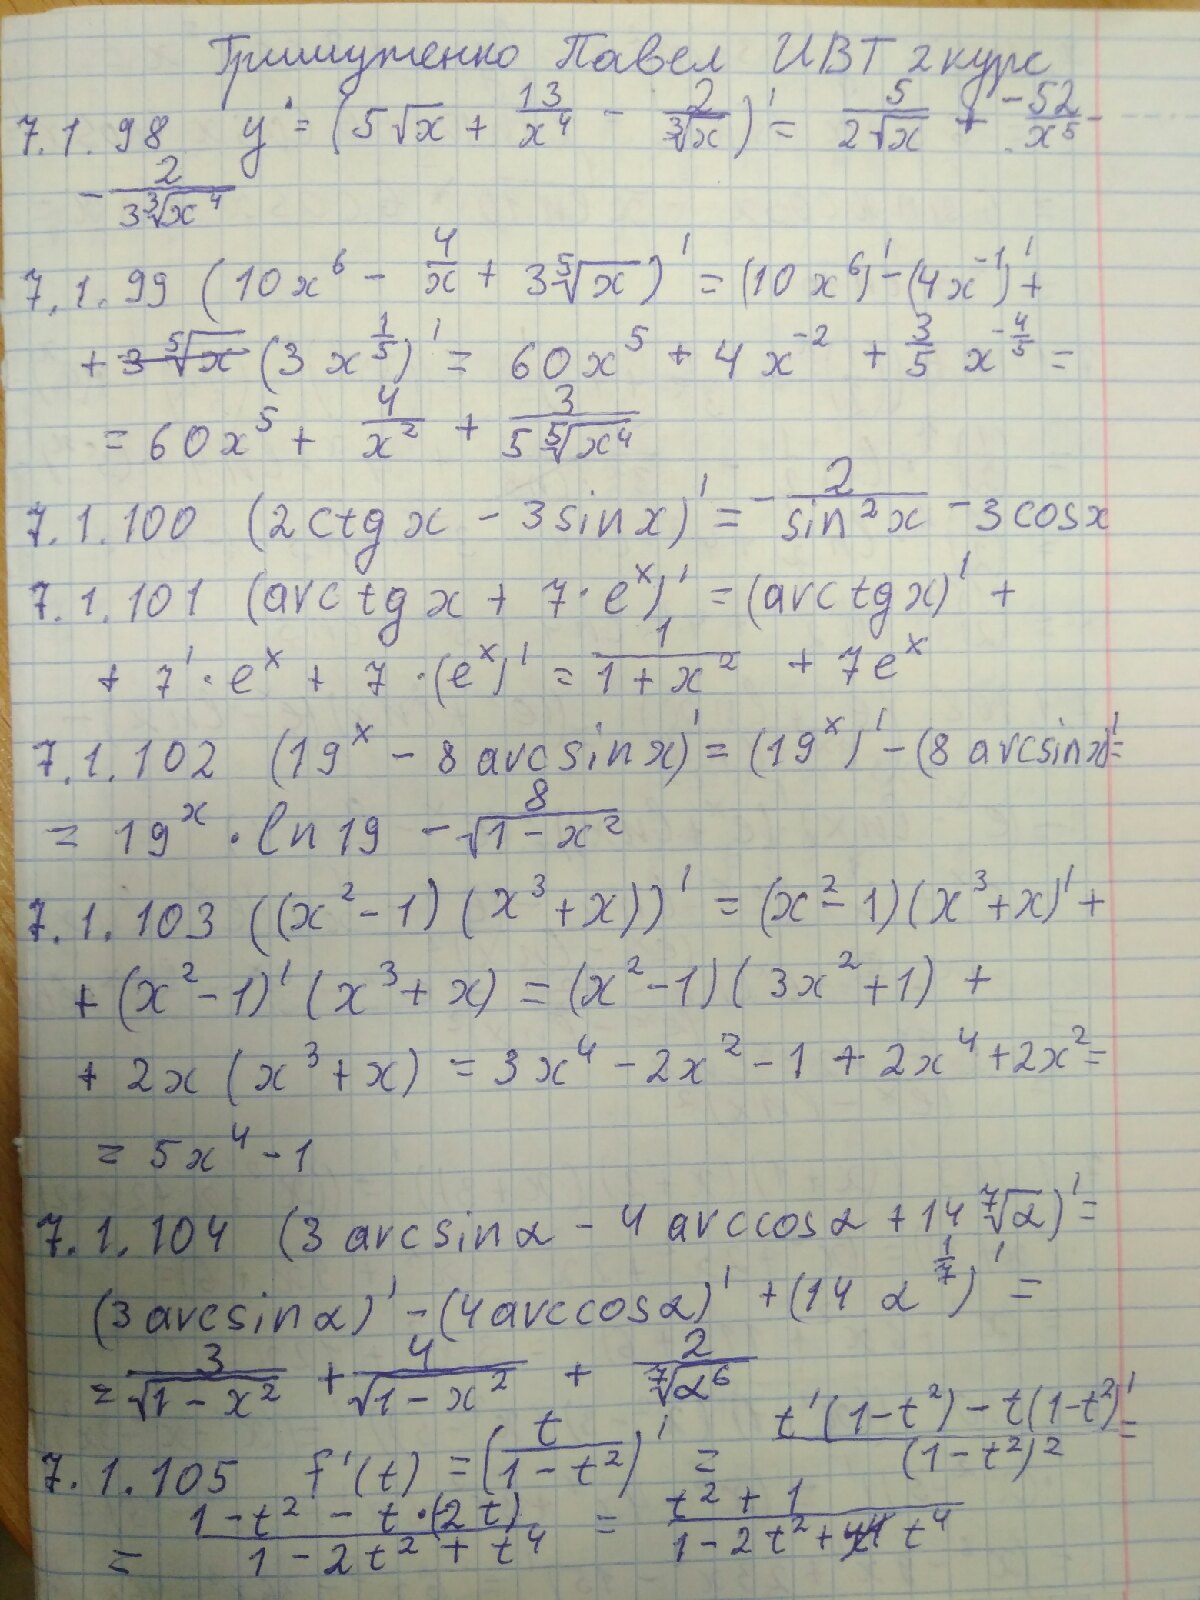 Гришутенко Павел ИВТ 2 курс
7.1.98 y' = (5√x + 13/x⁴ − 2/∛x)' = 5/(2√x) + −52/x⁵ −
− 2/(3∛x⁴)
7.1.99 (10x⁶ − 4/x + 3⁵√x)' = (10x⁶)' − (4x⁻¹)' +
+ 3⁵√x (3x^(1/5))' = 60x⁵ + 4x⁻² + 3/5 x^(−4/5) =
= 60x⁵ + 4/x² + 3/(5⁵√x⁴)
7.1.100 (2ctgx − 3sinx)' = −2/sin²x − 3cosx
7.1.101 (arctgx + 7·eˣ)' = (arctgx)' +
+ 7'·eˣ + 7·(eˣ)' = 1/(1+x²) + 7eˣ
7.1.102 (19ˣ − 8arcsinx)' = (19ˣ)' − (8arcsinx)' =
= 19ˣ·ln19 − 8/√(1−x²)
7.1.103 ((x²−1)(x³+x))' = (x²−1)(x³+x)' +
+ (x²−1)'(x³+x) = (x²−1)(3x²+1) +
+ 2x(x³+x) = 3x⁴ − 2x² − 1 + 2x⁴ + 2x² =
= 5x⁴ − 1
7.1.104 (3arcsinα − 4arccosα + 14⁷√α)' =
(3arcsinα)' − (4arccosα)' + (14α^(1/7))' =
= 3/√(1−x²) + 4/√(1−x²) + 2/⁷√α⁶
7.1.105 f'(t) = (t/(1−t²))' = (t'(1−t²) − t(1−t²)')/(1−t²)² =
= (1−t² − t·(2t))/(1−2t²+t⁴) = (t²+1)/(1−2t²+t⁴)